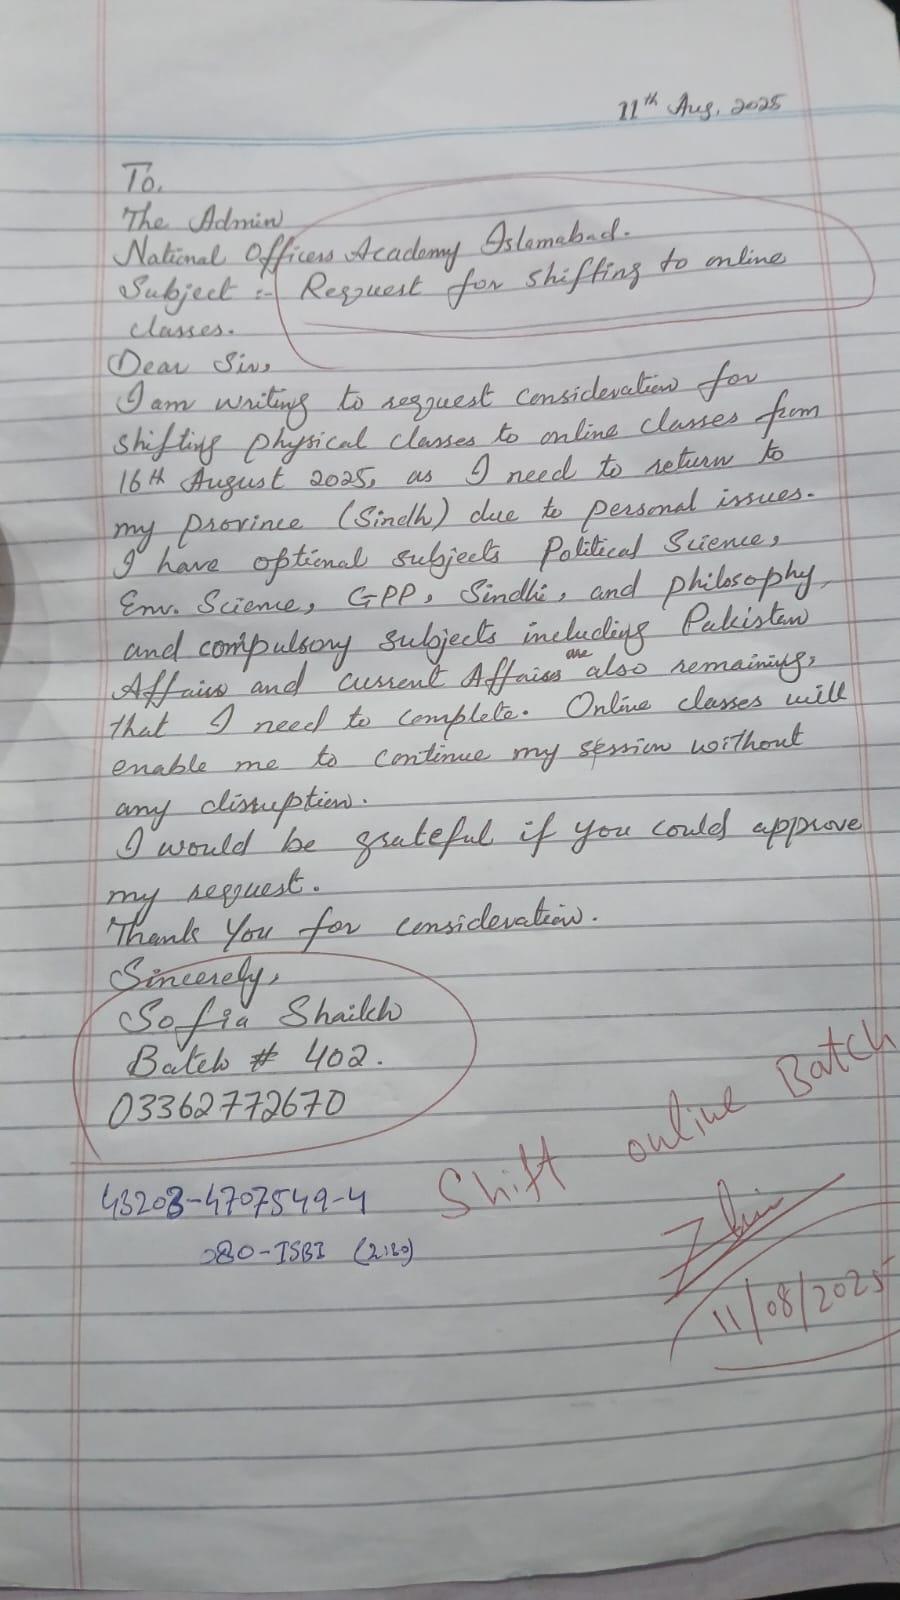 11th Aug, 2025
To,
The Admin
National Officers Academy Islamabad.
Subject :- Request for shifting to online
classes.
Dear Sir,
I am writing to request consideration for
shifting physical classes to online classes from
16th August 2025, as I need to return to
my province (Sindh) due to personal issues.
I have optional subjects Political Science,
Env. Science, GPP, Sindhi, and philosophy,
and compulsory subjects including Pakistan
Affairs and current Affairs are also remaining,
that I need to complete. Online classes will
enable me to continue my session without
any disruption.
I would be grateful if you could approve
my request.
Thank You for consideration.
Sincerely,
Sofia Shaikh
Batch # 402.
03362772670
Shift online Batch
43203-4707549-4
080-ISBI
11/08/2025